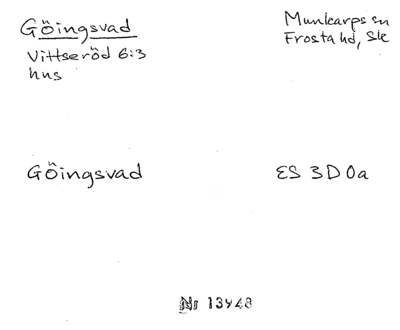 Göingsvad
Munkarps sn
Vittseröd 6:3
Frosta hd, Sk
hus
Göingsvad
ES 3D0a
Nr 13948